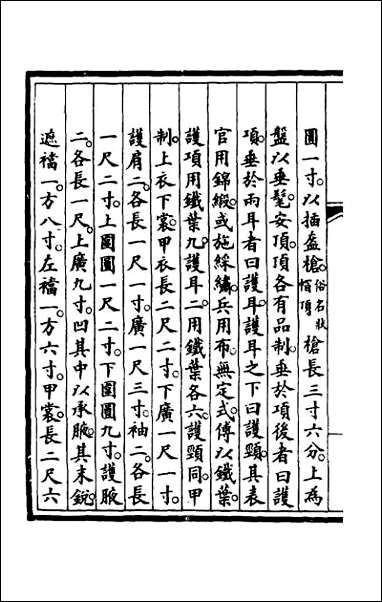 圍一寸。以插盔槍。俗名狀帽頂槍長三寸六分。上為
盤以垂髦。安頂頂各有品制。垂於項後者曰護
項。垂於兩耳者曰護耳。護耳之下曰護頸。其表
官用錦緞。或施綵繡。兵用布。無定式。傅以鐵葉。
護項用鐵葉九。護耳二用鐵葉各六。護頸同。甲
制。上衣下裳。甲衣長二尺二寸。下廣一尺一寸。
護肩二。各長一尺一寸。廣一尺三寸。袖二。各長
一尺二寸。上圍圍一尺二寸。下圍圍九寸。護腋
二。各長一尺。上廣九寸。凹其中以承腋。其末銳。
遮襠一。方八寸。左襠一。方六寸。甲裳。長二尺六